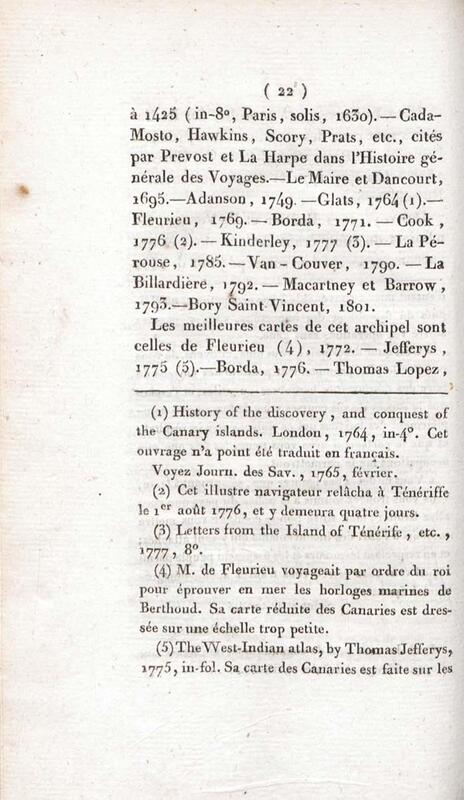 ( 22 )
à 1425 (in-8°, Paris, solis, 1630).—Cada-
Mosto, Hawkins, Scory, Prats, etc., cités
par Prevost et La Harpe dans l'Histoire gé-
nérale des Voyages.—Le Maire et Dancourt,
1695.—Adanson, 1749.—Glats, 1764 (1).—
Fleurieu, 1769.—Borda, 1771.—Cook,
1776 (2).—Kinderley, 1777 (3).—La Pé-
rouse, 1785.—Van-Couver, 1790.—La
Billardière, 1792.—Macartney et Barrow,
1793.—Bory Saint-Vincent, 1801.
Les meilleures cartes de cet archipel sont
celles de Fleurieu (4), 1772.—Jefferys,
1775 (5).—Borda, 1776.—Thomas Lopez,
(1) History of the discovery, and conquest of
the Canary islands. London, 1764, in-4°. Cet
ouvrage n'a point été traduit en français.
Voyez Journ. des Sav., 1765, février.
(2) Cet illustre navigateur relâcha à Ténériffe
le 1er août 1776, et y demeura quatre jours.
(3) Letters from the Island of Ténérife, etc.,
1777, 8°.
(4) M. de Fleurieu voyageait par ordre du roi
pour éprouver en mer les horloges marines de
Berthoud. Sa carte réduite des Canaries est dres-
sée sur une échelle trop petite.
(5) The West-Indian atlas, by Thomas Jefferys,
1775, in-fol. Sa carte des Canaries est faite sur les